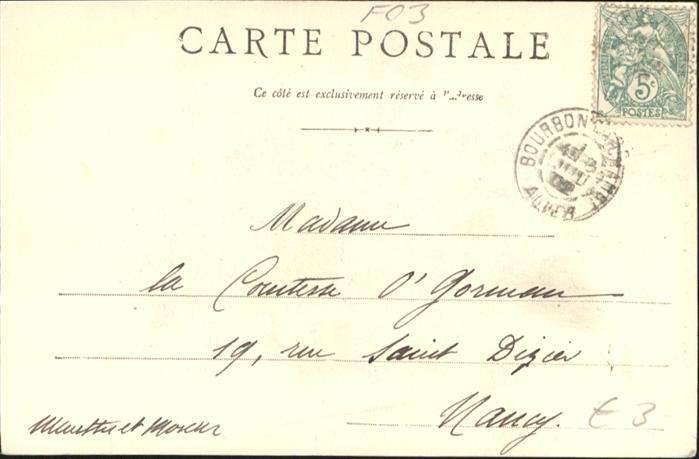 F03
CARTE POSTALE
Ce côté est exclusivement réservé à l'adresse
5c
POSTES
BOURBON
ALLIER
Madame
la Comtesse O'Gorman
19, rue Saint Dizier
Nancy.
£3
Meurthe et Moselle